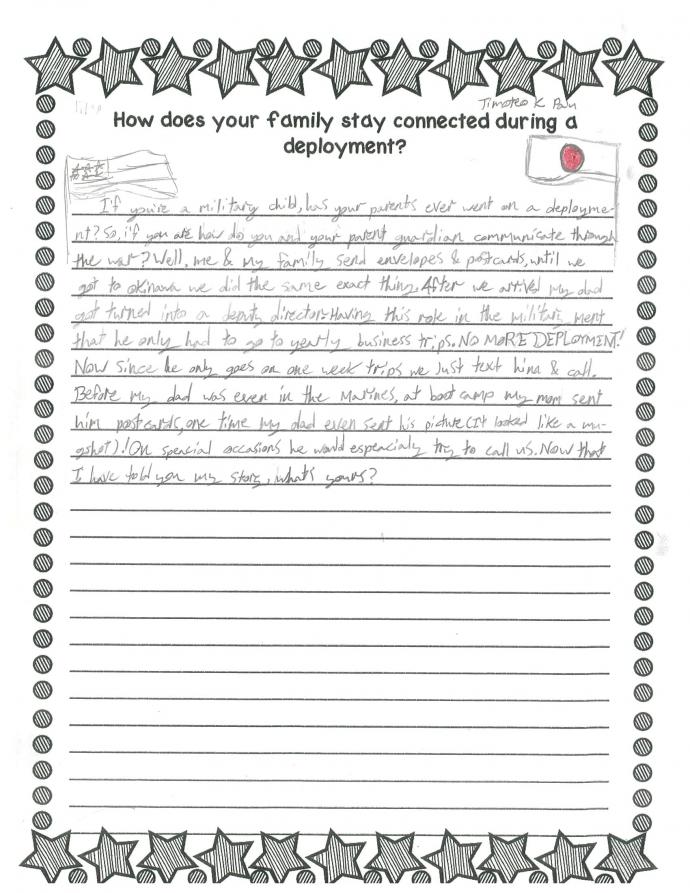 Timoteo K
How does your family stay connected during a
deployment?
If you're a military child, has your parents ever went on a deployme-
nt? So, if you are how do you and your parent guardian communicate through
the war? Well, me & my family send envelopes & postcards, until we
got to okinawa we did the same exact thing. After we arrived my dad
got turned into a deputy director. Having this role in the military ment
that he only had to go to yearly business trips. NO MORE DEPLOYMENT!
Now since he only goes on one week trips we just text him & call.
Before my dad was even in the Marines, at boot camp my mom sent
him postcards, one time my dad even sent his picture (It looked like a mu-
gshot)! On speacial occasions he would espeacialy try to call us. Now that
I have told you my story, what's yours?